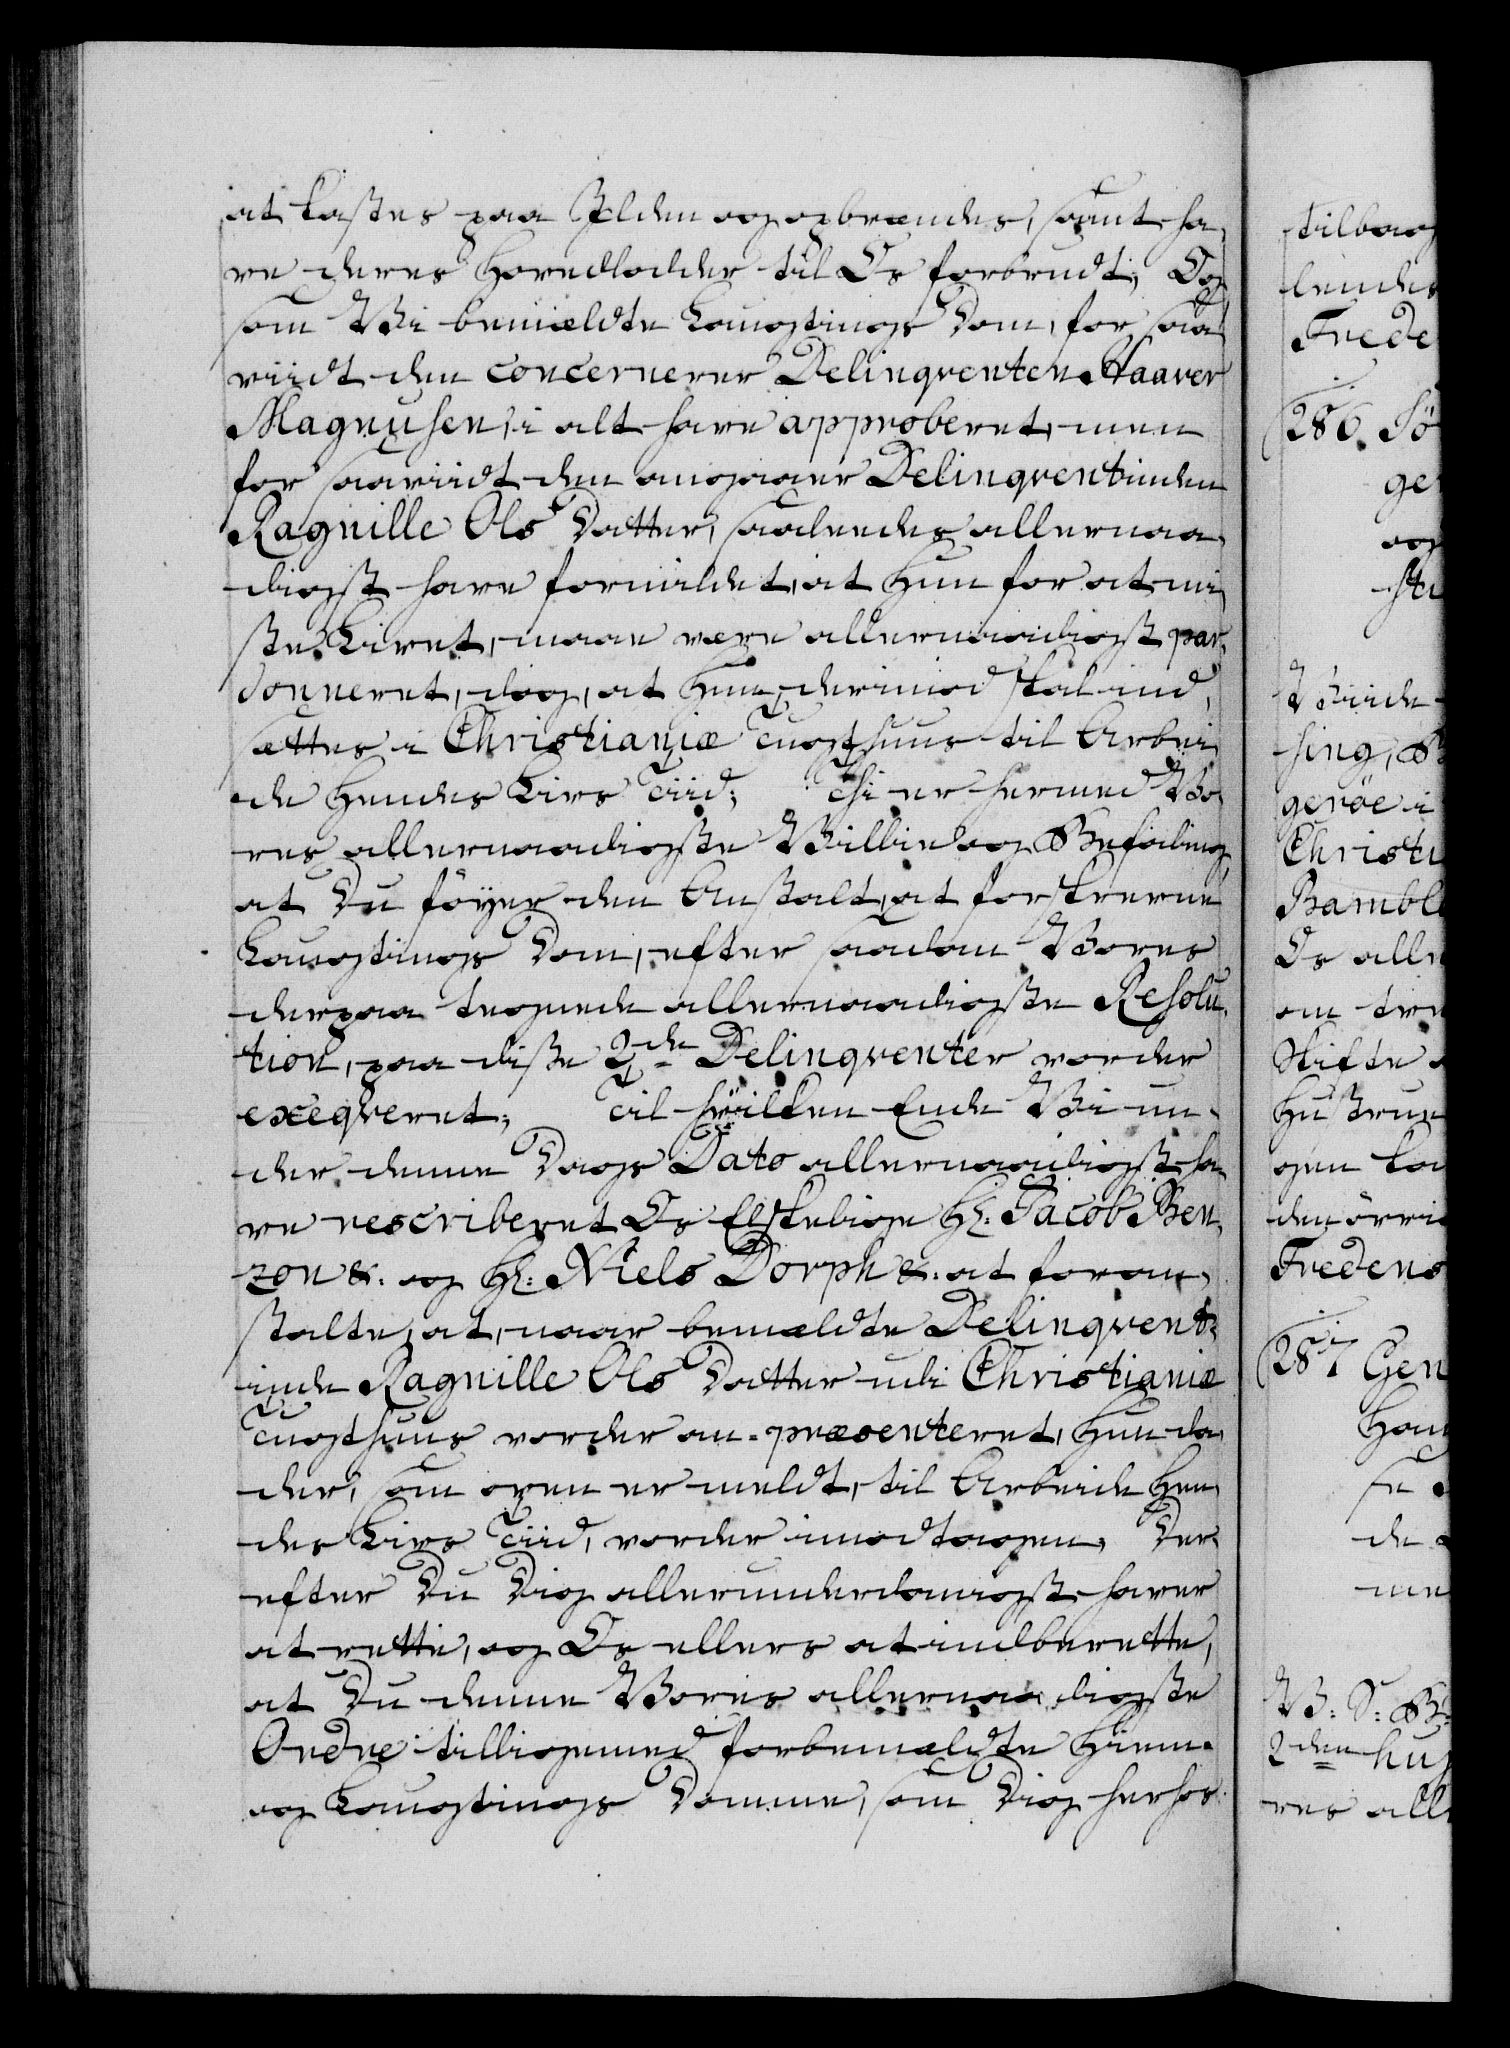 at kastes paa Ilden og opbrændes, samt ha,
ve deres Hovedlodder til Os forbrudt; Og
som Vi bemældte Laugtings Dom, for saa
viidt den concernerer Delinqventen Haaver
Magnusen, i alt have approberet, men
for saaviidt den angaaer Delinqventinden
Ragnille Ols Datter, saaledes allernaa,
digst have formildet, at Hun for at mi,
ste Livet, maae være allernaadigst par,
donneret, dog, at Hun derimod skal ind,
sættes i Christianiæ Tugthuus til Arbei,
de Hendes Livs Tiid; Thi er hermed Vo,
res allernaadigste Villie og Befaling,
at Du föyer den Anstalt, at forskrevne
Laugtings Dom, efter saadan Vores
derpaa tegnede allernaadigste Resolu,
tion, paa disse 2de Delinqventer vorder
exeqveret; Til hvilken Ende Vi un,
der denne Dags Dato allernaadigst ha,
ve rescriberet Os Elskelige Hr: Jacob Ben,
zon &: og Hr: Niels Dorph &: at foran,
stalte, at, naar bemældte Delinqvent,
inde Ragnille Ols Datter udi Christianiæ
Tugthuus vorder an-præsenteret, Hun da
der, som oven er meldt, til Arbeide Hen,
des Livs Tiid, vorder imodtagen, Der,
efter Du Dig allerunderdanigst haver
at rette, og Os ellers at indberette,
at Du denne Vores allernaadigste
Ordre tilligemed forbemældte Hiem-
og Laugtings Domme, som Dig herhos
tilbag
lendes
Frede
286. Sö
ge
og
sti
Viide
sing, B
geröe i
Christi
Bamble
Os alle
om tre
Skifte
Hustrue
gen ka
den övri
Fredens
287 Gen
Ham
se
de
me
V: S: B:
2den huj
res alle